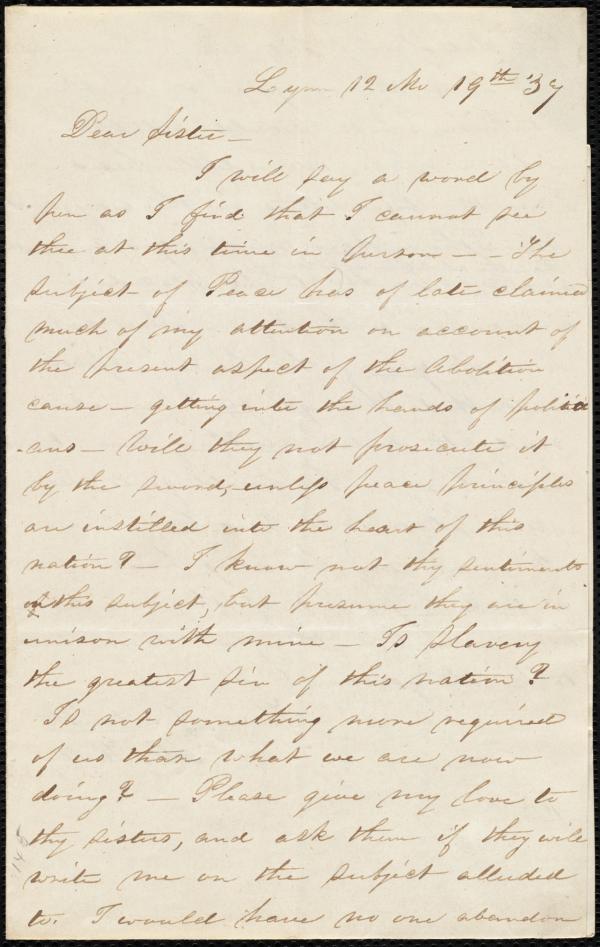 Lynn 12 Mo 19th '37
Dear Sister —
I will say a word by
pen as I find that I cannot see
thee at this time in person — — The
subject of Peace has of late claimed
much of my attention on account of
the present aspect of the Abolition
cause — getting into the hands of politici
ans — Will they not prosecute it
by the sword, unless peace principles
are instilled into the heart of this
nation? — I know not thy sentiments
on this subject, but presume they are in
unison with mine — Is Slavery
the greatest sin of this nation?
Is not something more required
of us than what we are now
doing? — Please give my love to
thy sisters, and ask them if they will
write me on the subject alluded
to. I would have no one abandon